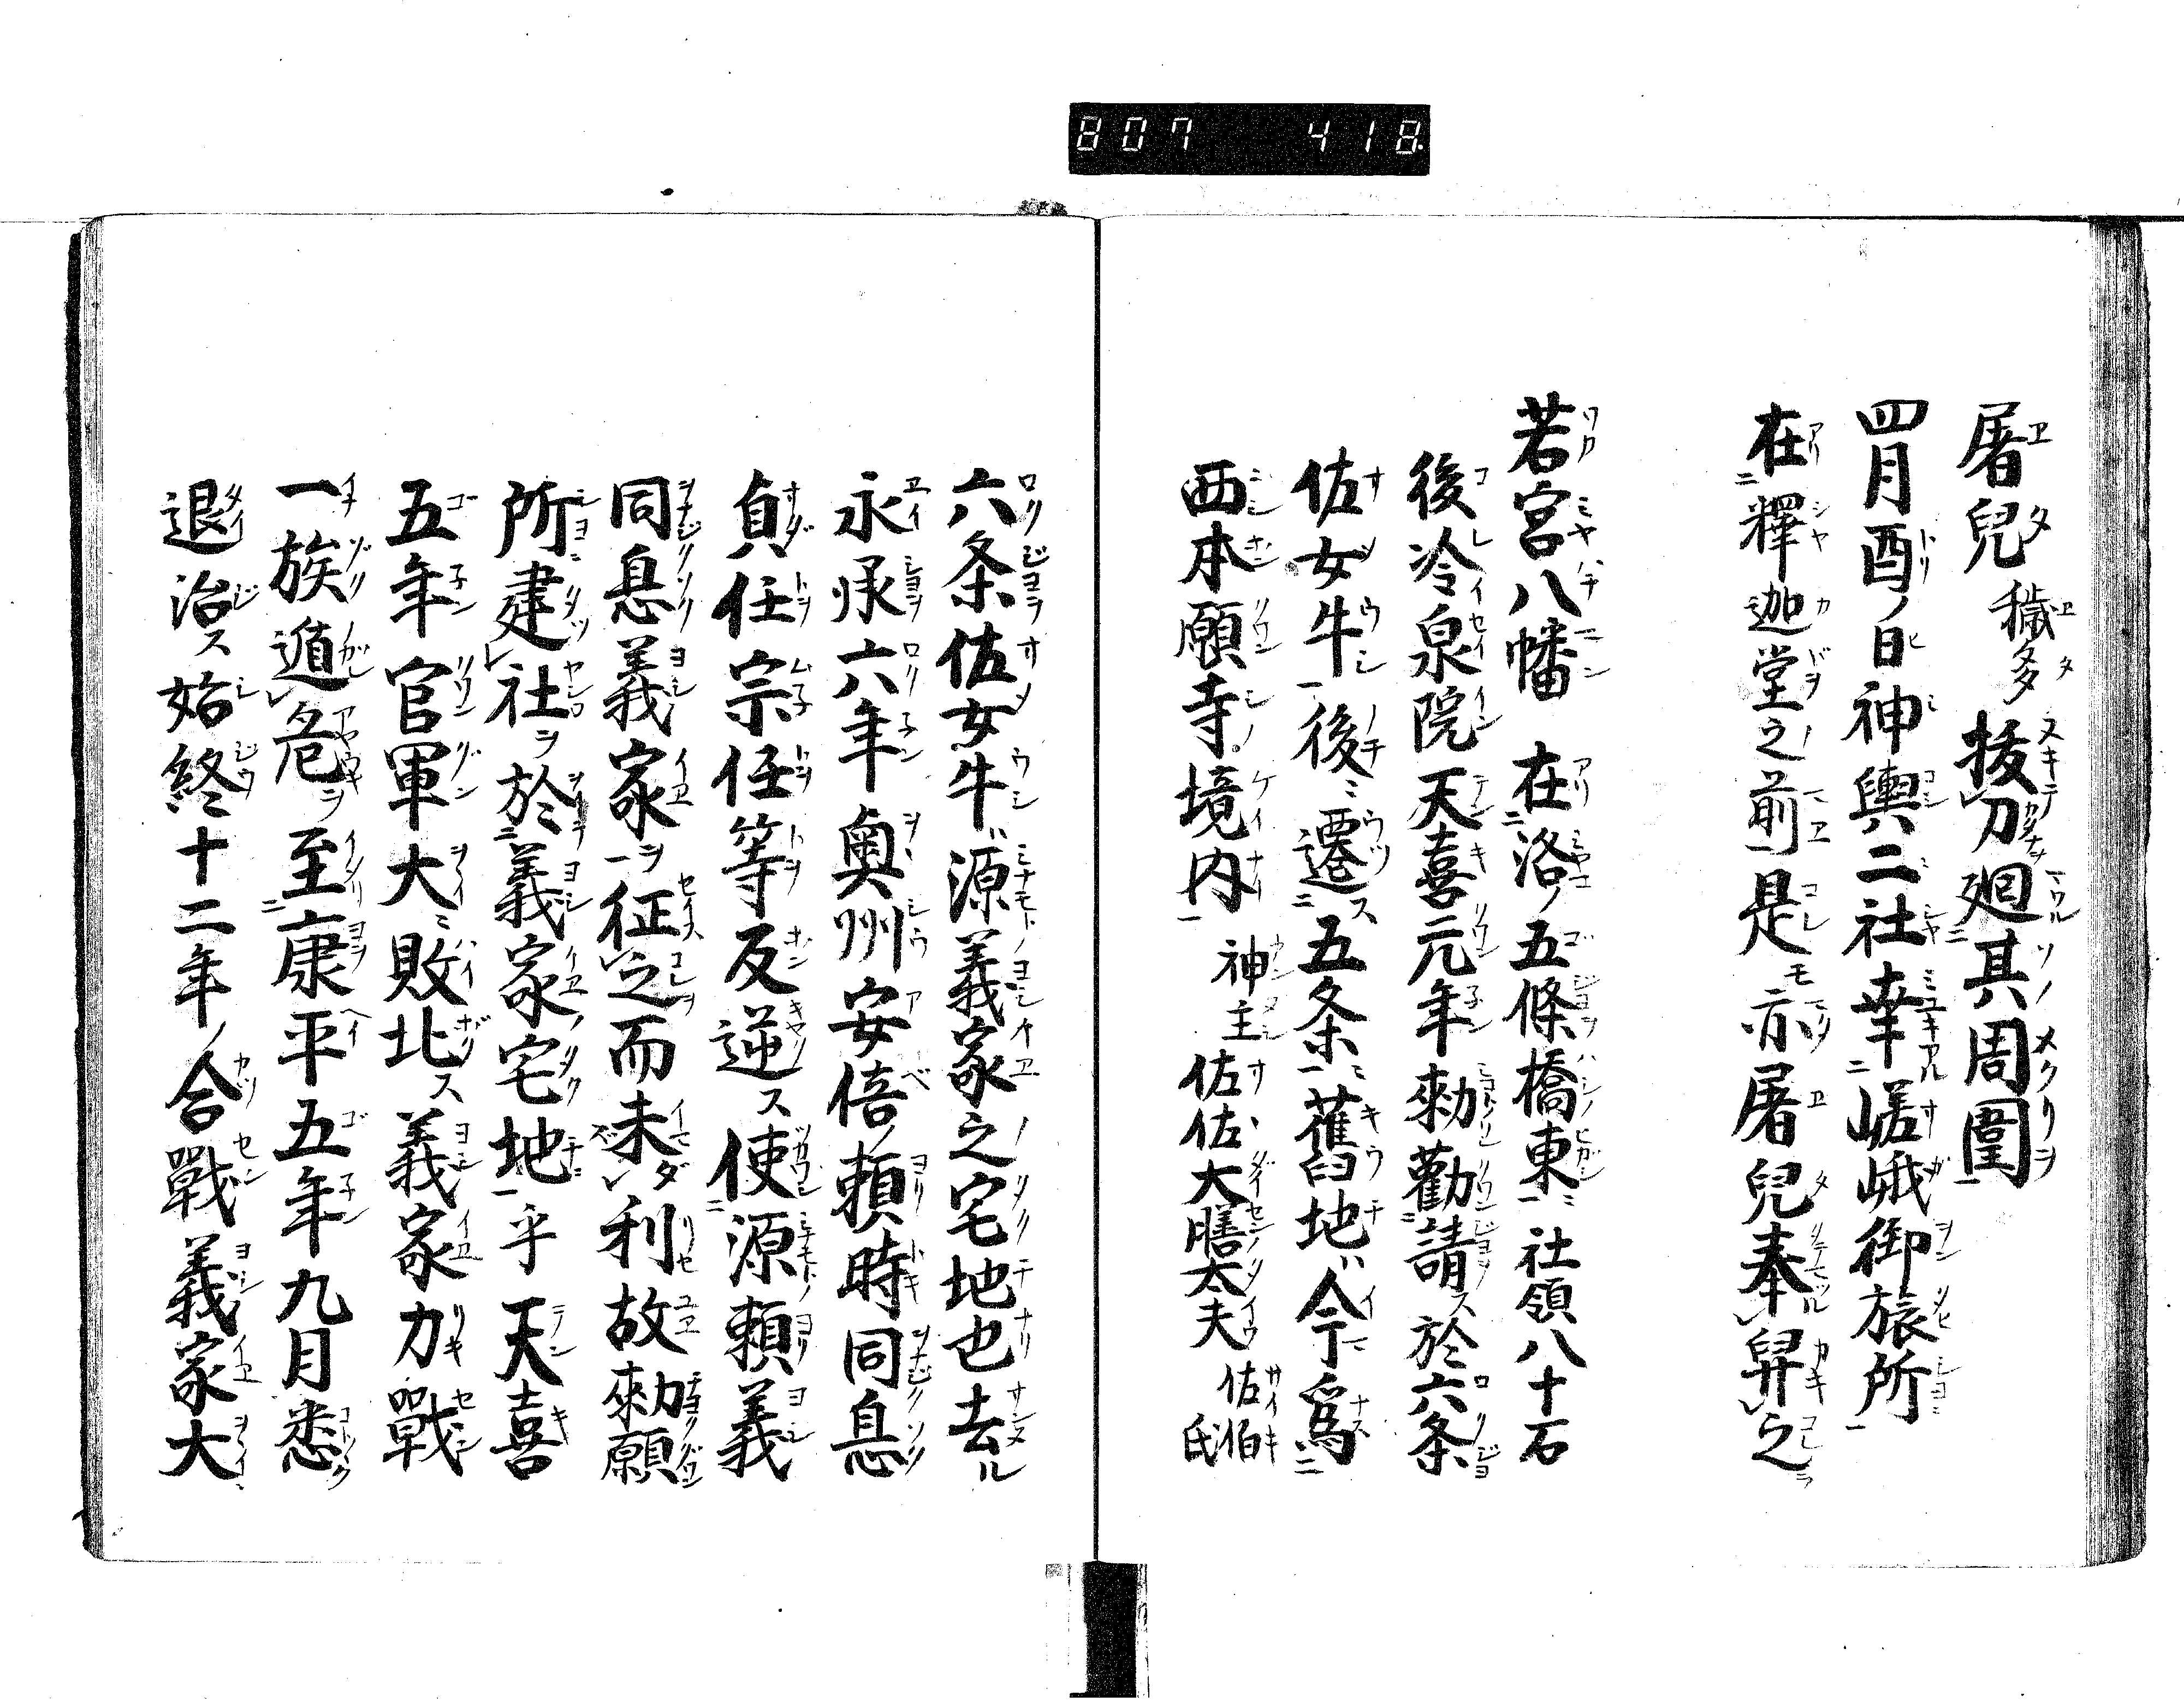 807 418
屠兒 穢多 拔刀廻其周圍
四月酉ノ日神輿二社幸嵯峨御旅所
在釋迦堂之前是モ亦屠兒奉舁之
若宮八幡 在洛ノ五條橋東 社領八十石
後冷泉院天喜元年勅勸請ス於六条
佐女牛後ニ遷ス五条ニ舊地ハ今為
西本願寺ノ境内 神主 佐佐大膳太夫 佐伯氏
六条佐女牛ハ源義家之宅地也去ル
永承六年奧州安倍ノ賴時同息
貞任宗任等反逆ス使源賴義
同息義家ヲ征之而未ダ利故勅願
所建社ヲ於義家ノ宅地乎天喜
五年官軍大ニ敗北ス義家力戰
一族遁危ヲ至康平五年九月悉
退治ス始終十二年ノ合戰義家大